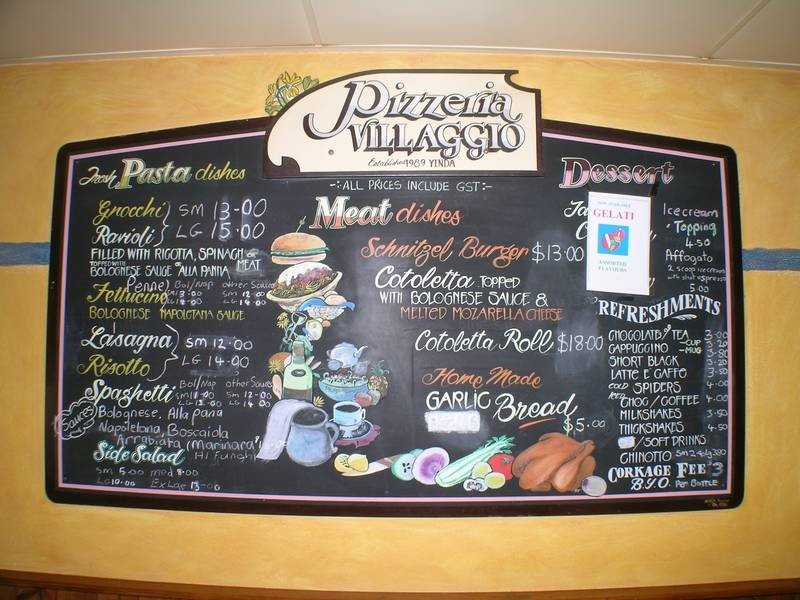 Pizzeria
VILLAGGIO
Established 1989 YENDA
-:ALL PRICES INCLUDE GST:-
Fresh Pasta dishes
Gnocchi
Ravioli
SM 13-00
LG 15.00
FILLED WITH RIGOTTA, SPINAGH OR MEAT
TOPPED WITH
BOLOGNESE SAUCE OR ALLA PANNA
Penne
Fettucine
Bol/Nap other Sauces
SM 12-00
LG 14-00
BOLOGNESE NAPOLETANA SAUCE
Lasagna
Risotto
SM 12.00
LG 14-00
Spaghetti
Bol/Nap other Sauces
SM 12.00
LG 14.00
Sauces
Bolognese, Alla pana
Napoletana, Boscaiola
Arrabiata (Marinara
Side Salad
SM 5.00 med 8.00
LG 10.00 Ex Lge 13-00
Meat dishes
Schnitzel Burger $13-00
Cotoletta TOPPED
WITH BOLOGNESE SAUCE &
MELTED MOZARELLA CHEESE
Cotoletta Roll $18-00
Home Made
GARLIC
Bread
$5.00
Dessert
NOW AVAILABLE
GELATI
ASSORTED
FLAVOURS
Ice cream
Topping
4.50
Affogato
2 scoop ice cream
with shot espresso
5.00
REFRESHMENTS
CHOCOLATE/TEA 3-00
CAPPUCINO -CUP
-MUG
SHORT BLACK
LATTE E CAFFE
SPIDERS 4-00
ICED CHOC / COFFEE 4.00
MILKSHAKES 3-50
THICKSHAKES 4.50
/SOFT DRINKS
CHINOTTO
CORKAGE FEE $3
B.Y.O. PER BOTTLE